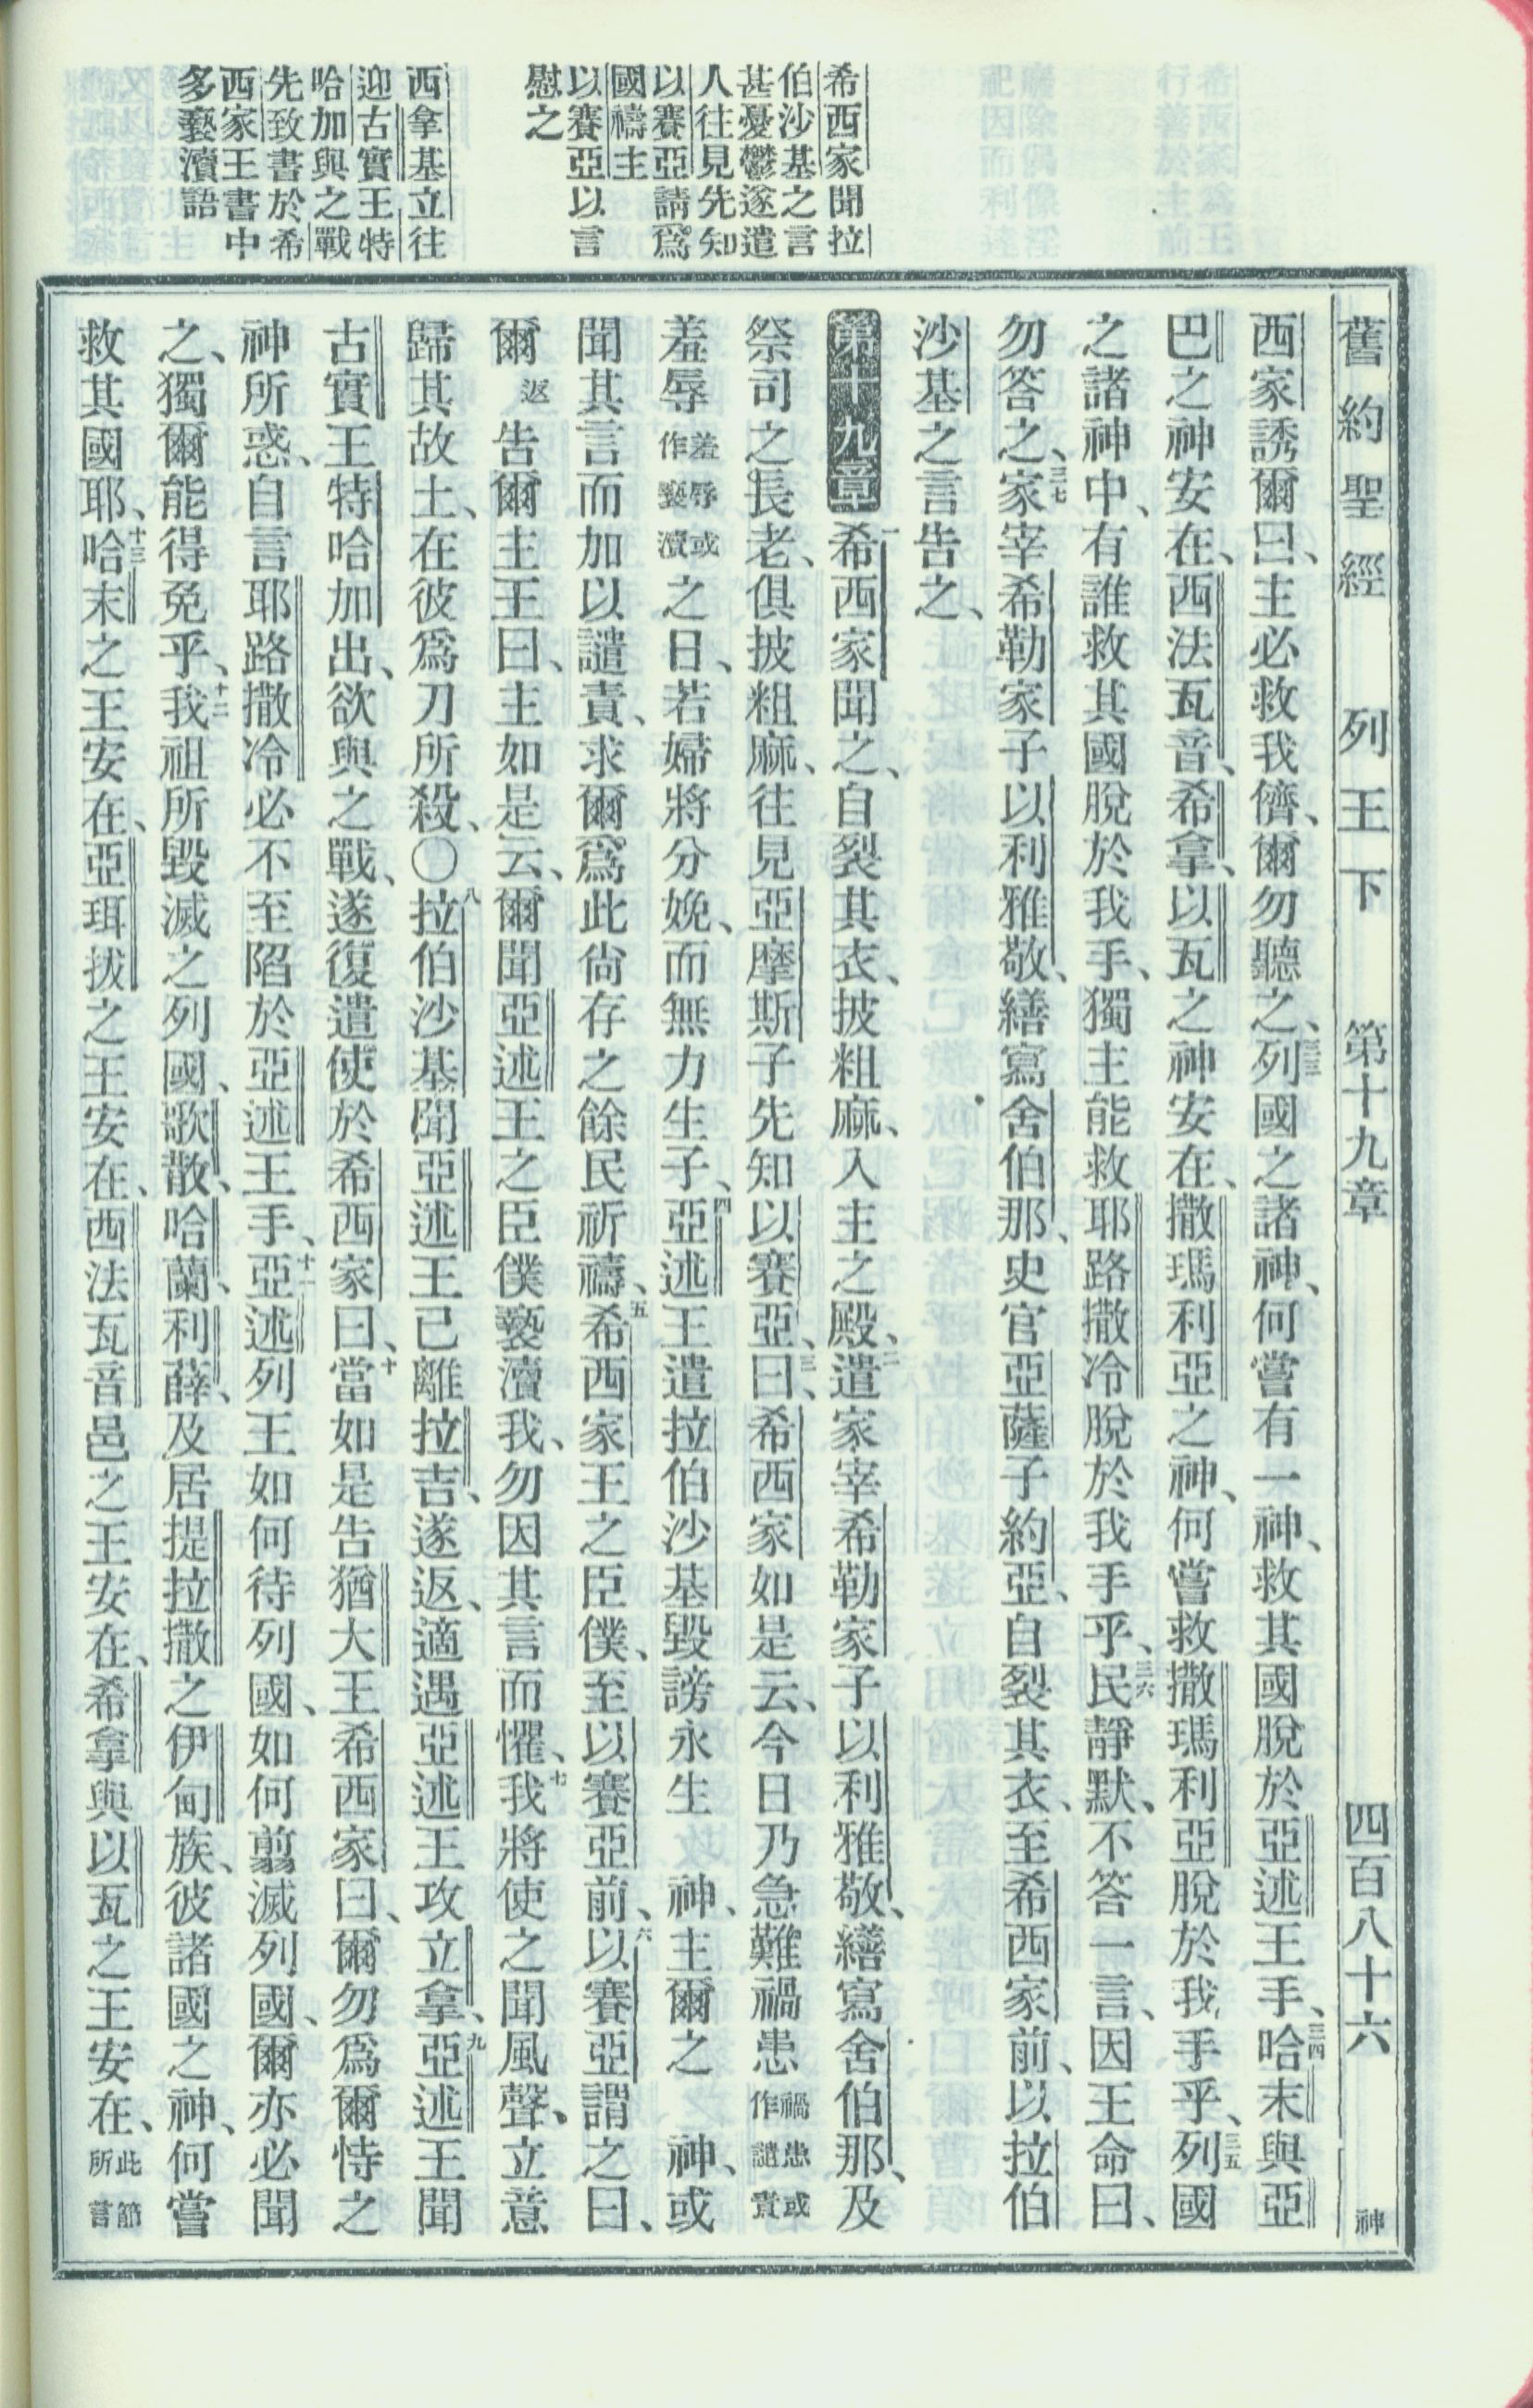 舊約聖經 列王下 第十九章 四百八十六 神
希西家聞拉
伯沙基之言
甚憂鬱遂遣
人往見先知
以賽亞請爲
國禱主
以賽亞以言
慰之
西拿基立往
迎古實王特
哈加與之戰
先致書於希
西家王書中
多褻瀆語
西家誘爾曰、主必救我儕、爾勿聽之、三三列國之諸神、何嘗有一神、救其國脫於亞述王手、三四哈末與亞
巴之神安在、西法瓦音、希拿、以瓦之神安在、撒瑪利亞之神、何嘗救撒瑪利亞脫於我手乎、三五列國
之諸神中、有誰救其國脫於我手、獨主能救耶路撒冷脫於我手乎、三六民靜默、不答一言、因王命曰、
勿答之、三七家宰希勒家子以利雅敬、繕寫舍伯那、史官亞薩子約亞、自裂其衣、至希西家前、以拉伯
沙基之言告之、
第十九章 一希西家聞之、自裂其衣、披粗麻、入主之殿、二遣家宰希勒家子以利雅敬、繕寫舍伯那、及
祭司之長老、俱披粗麻、往見亞摩斯子先知以賽亞、三曰、希西家如是云、今日乃急難禍患禍患或作譴責
羞辱羞辱或作褻瀆之日、若婦將分娩、而無力生子、四亞述王遣拉伯沙基毀謗永生 神、主爾之 神、或
聞其言而加以譴責、求爾爲此尚存之餘民祈禱、五希西家王之臣僕、至以賽亞前、六以賽亞謂之曰、
爾返告爾主王曰、主如是云、爾聞亞述王之臣僕褻瀆我、勿因其言而懼、七我將使之聞風聲、立意
歸其故土、在彼爲刀所殺、〇八拉伯沙基聞亞述王已離拉吉、遂返、適遇亞述王攻立拿、九亞述王聞
古實王特哈加出、欲與之戰、遂復遣使於希西家曰、十當如是告猶大王希西家曰、爾勿爲爾恃之
神所惑、自言耶路撒冷必不至陷於亞述王手、十一亞述列王如何待列國、如何翦滅列國、爾亦必聞
之、獨爾能得免乎、十二我祖所毀滅之列國、歌散、哈蘭、利薛、及居提拉撒之伊甸族、彼諸國之神、何嘗
救其國耶、十三哈末之王安在、亞珥拔之王安在、西法瓦音邑之王安在、希拿與以瓦之王安在、此節所言